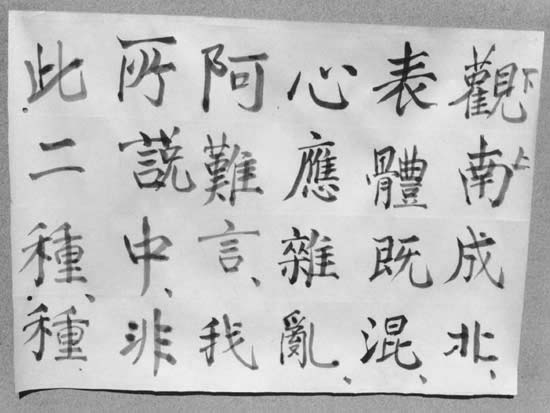 觀南成北、
表體既混、
心應雜亂、
阿難言、我
所説中、非
此二種、種
下
上